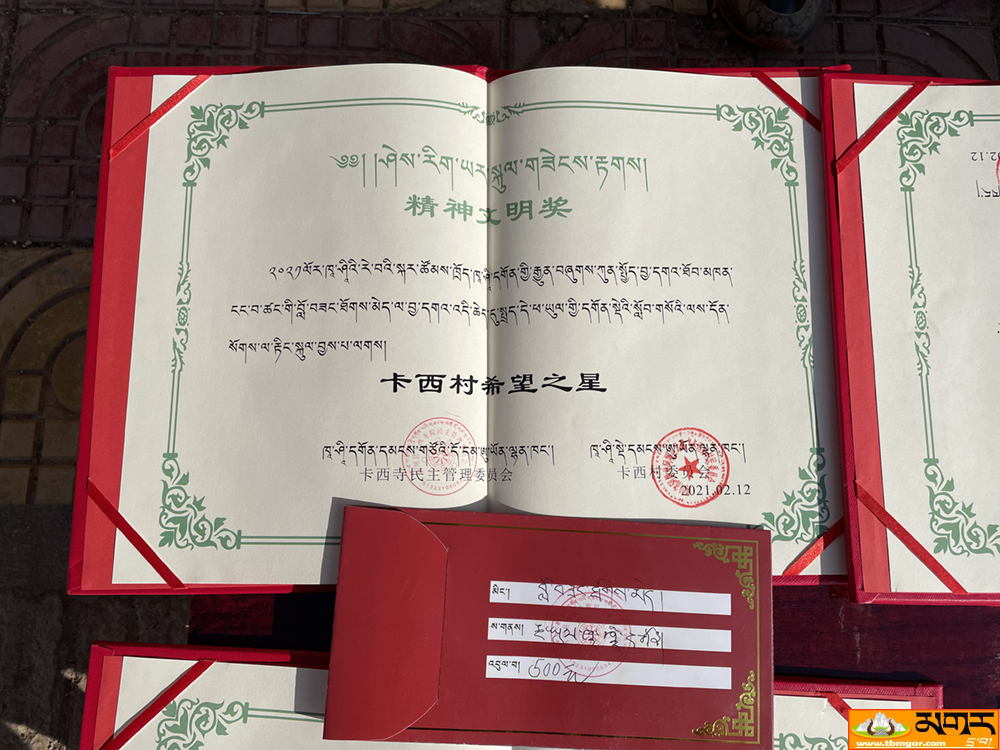 ༄༅།། །ཤེས་རིག་ཡར་སྐུལ་གཟེངས་རྟགས།
精神文明奖
༢༠༢༡ལོར་ཁ་ཤིའི་རེ་བའི་སྐར་ཚོམས་ཁྲོད་ཁ་ཤི་དགོན་གྱི་རྒྱུན་བཞུགས་ཀུན་སྤྱོད་བྱ་དགའ་ཐོབ་མཁན་
ངང་བ་ཚང་གི་བློ་བཟང་ཐོགས་མེད་ལ་བྱ་དགའ་འདི་ཆེད་དུ་སྤྲད་དེ་ཕ་ཡུལ་གྱི་དགོན་སྡེའི་སློབ་གསོའི་ལས་དོན་
སོགས་ལ་རྟིང་སྐུལ་བྱས་པ་ལགས།
卡西村希望之星
ཁ་ཤི་དགོན་དམངས་གཙོའི་དོ་དམ་ཨུ་ཡོན་ལྷན་ཁང་།
卡西寺民主管理委员会
ཁ་ཤི་སྡེ་དམངས་ཨུ་ཡོན་ལྷན་ཁང་།
卡西村委员会
2021.02.12
མིང་། བློ་བཟང་ཐོགས་མེད།
ས་གནས།
འབུལ་བ། 500元
2.12
མགར
www.tbmgar.com